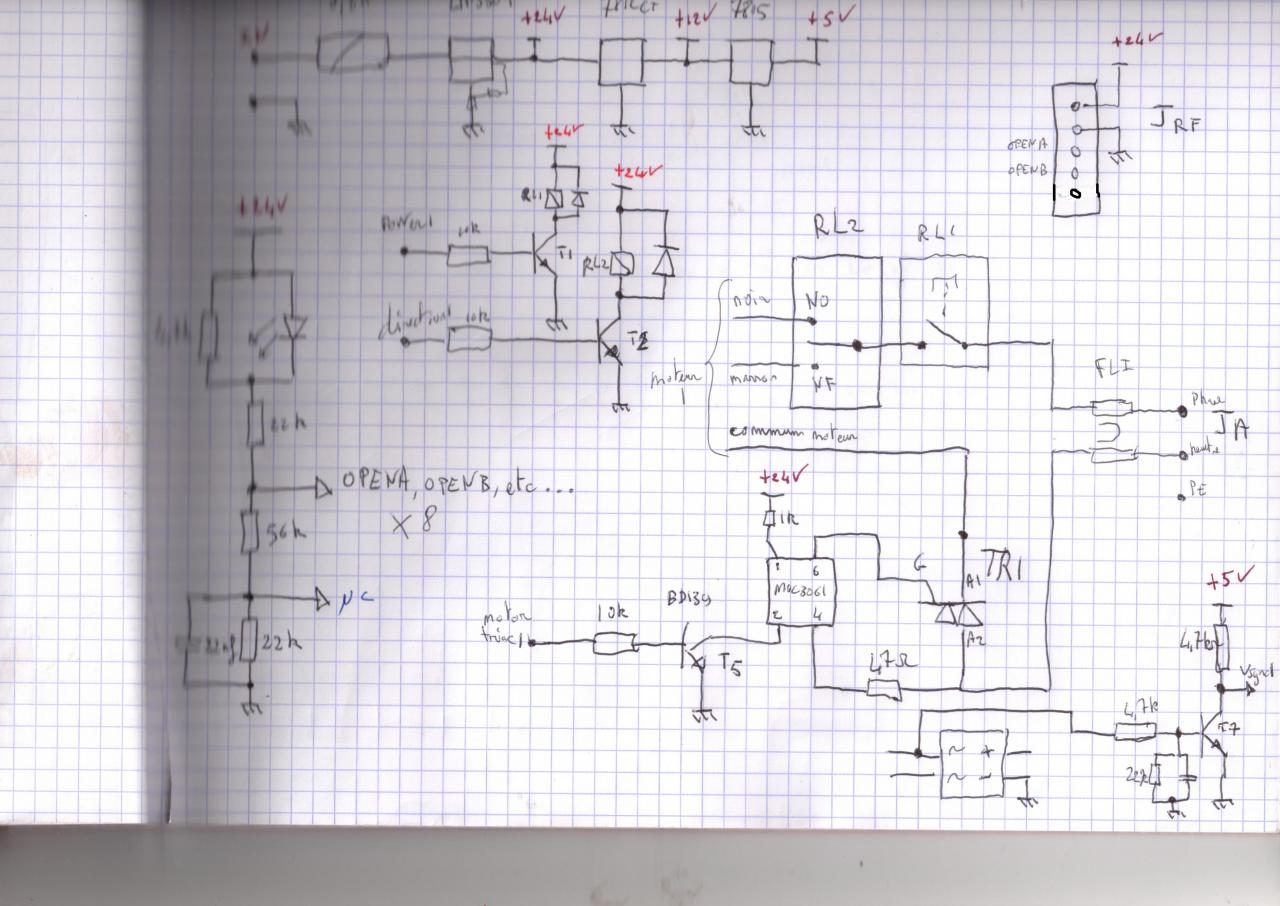 +24V
+12V
7815
+5V
+24V
JRF
OPENA
OPENB
+24V
+24V
RL1
power1
10k
T1
RL2
direction1
10k
T2
+24V
22k
OPENA, OPENB, etc...
X 8
56k
µC
22nf
22k
RL2
RL1
noir
NO
moteur
1
marron
NF
commum moteur
FLI
Phase
JA
neutre
PE
+24V
1k
1
6
MOC3061
2
4
G
A1
TR1
A2
BD139
motor
triac1
10k
T5
47Ω
+5V
4,7k
Vsynct
4,7k
T7
22k
~ +
~ -